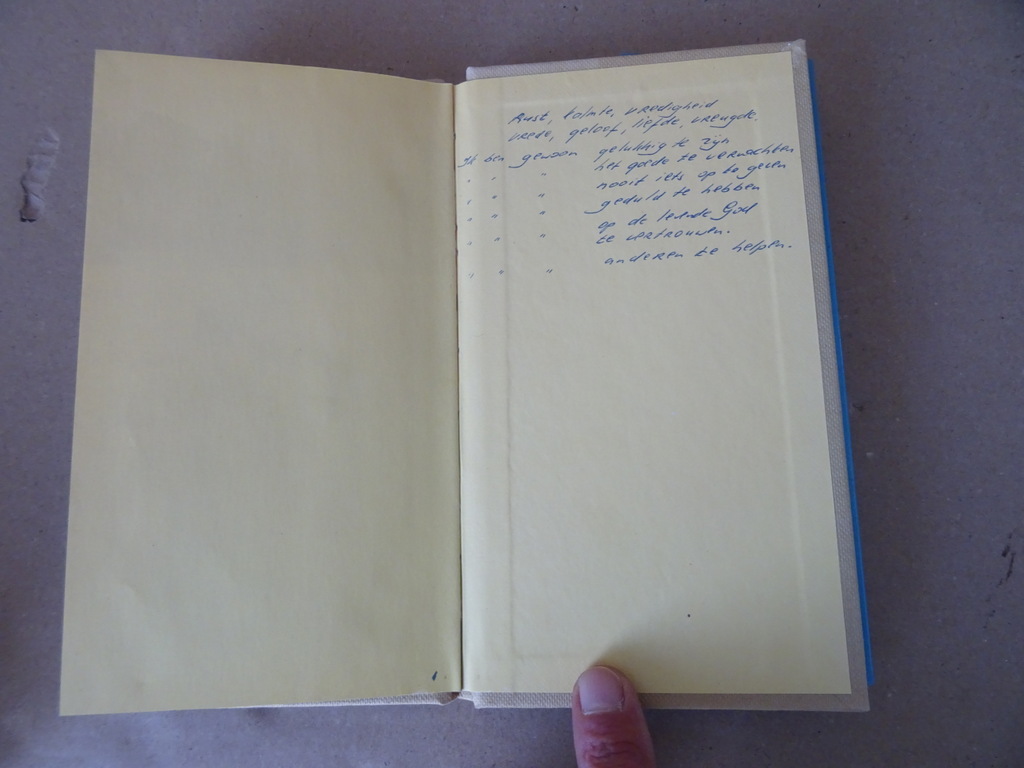 Rust, kalmte, vredigheid
vrede, geloof, liefde, vreugde.
Ik ben gewoon gelukkig te zijn
" " " het goede te verwachten
" " " nooit iets op te geven
" " " geduld te hebben
" " " op de levende God
te vertrouwen.
" " " anderen te helpen.